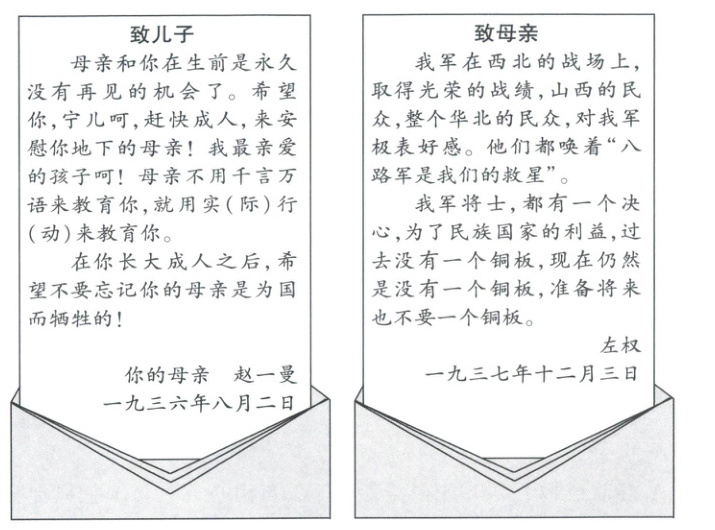 致儿子
母亲和你在生前是永久
没有再见的机会了。希望
你,宁儿呵,赶快成人,来安
慰你地下的母亲！我最亲爱
的孩子呵！母亲不用千言万
语来教育你,就用实(际)行
(动)来教育你。
在你长大成人之后,希
望不要忘记你的母亲是为国
而牺牲的！
你的母亲 赵一曼
一九三六年八月二日
致母亲
我军在西北的战场上,
取得光荣的战绩,山西的民
众,整个华北的民众,对我军
极表好感。他们都唤着“八
路军是我们的救星”。
我军将士,都有一个决
心,为了民族国家的利益,过
去没有一个铜板,现在仍然
是没有一个铜板,准备将来
也不要一个铜板。
左权
一九三七年十二月三日